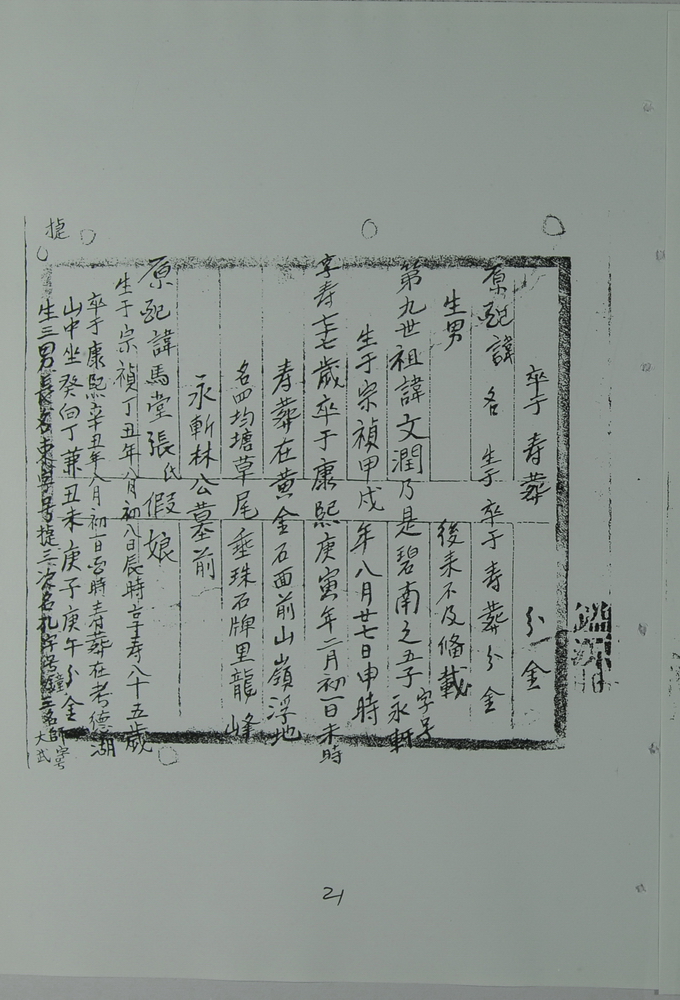 卒于 寿葬 分金
原配諱 名 生于 卒于 寿葬 分金
生男 後来不及脩載
第九世祖諱文潤乃是碧南之五子 字号永軒
生于宗禎甲戌年八月廿七日申時
享寿七十七歲卒于康熙庚寅年二月初一日未時
寿葬在黄金石面前山嶺浮地
名四均塘草尾垂珠石牌里龍峰
永斬林公墓前
原配諱馬堂張氏假娘
生于宗禎丁丑年八月初八日辰時享寿八十五歲
卒于康熙辛丑年八月初一日 時寿葬在考德湖
山中坐癸向丁兼丑未庚子庚午分金
生三男長名 字号捷三次名 師字号大武
捷
21